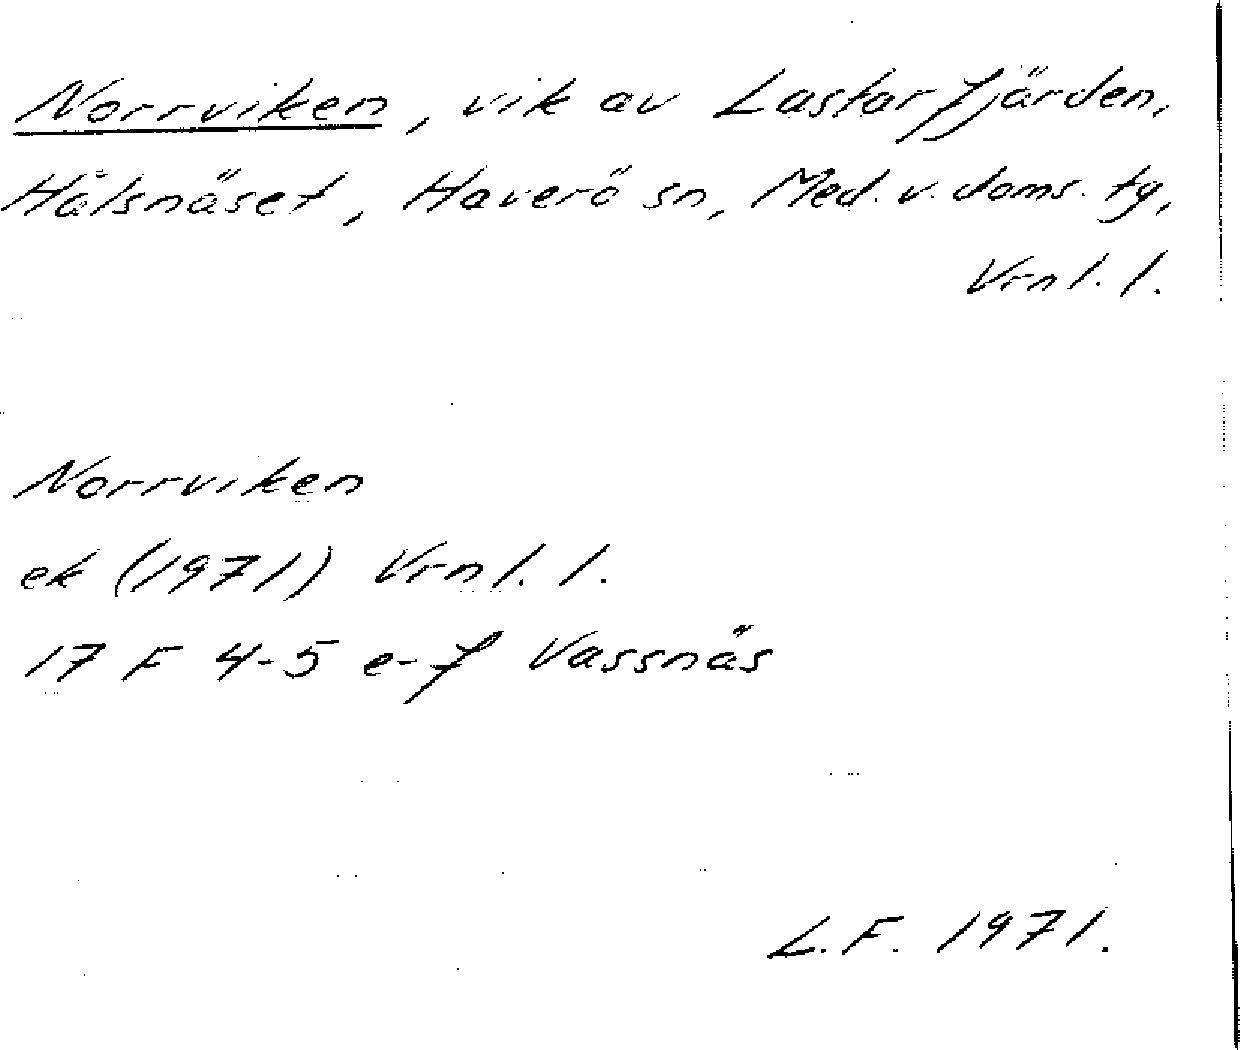 Norrviken, vik av Lastarfjärden,
Hålsnäset, Haverö sn, Med. v. doms. tg,
Vrnl. l.
Norrviken
ek (1971) Vrnl. l.
17 F 4-5 e-f Vassnäs
L.F. 1971.